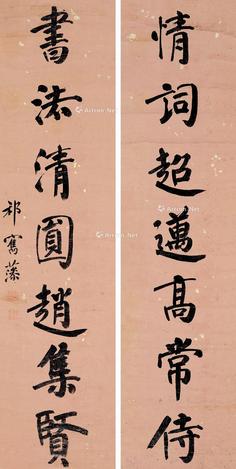 情詞超邁高常侍
書法清圓趙集賢
祁寯藻